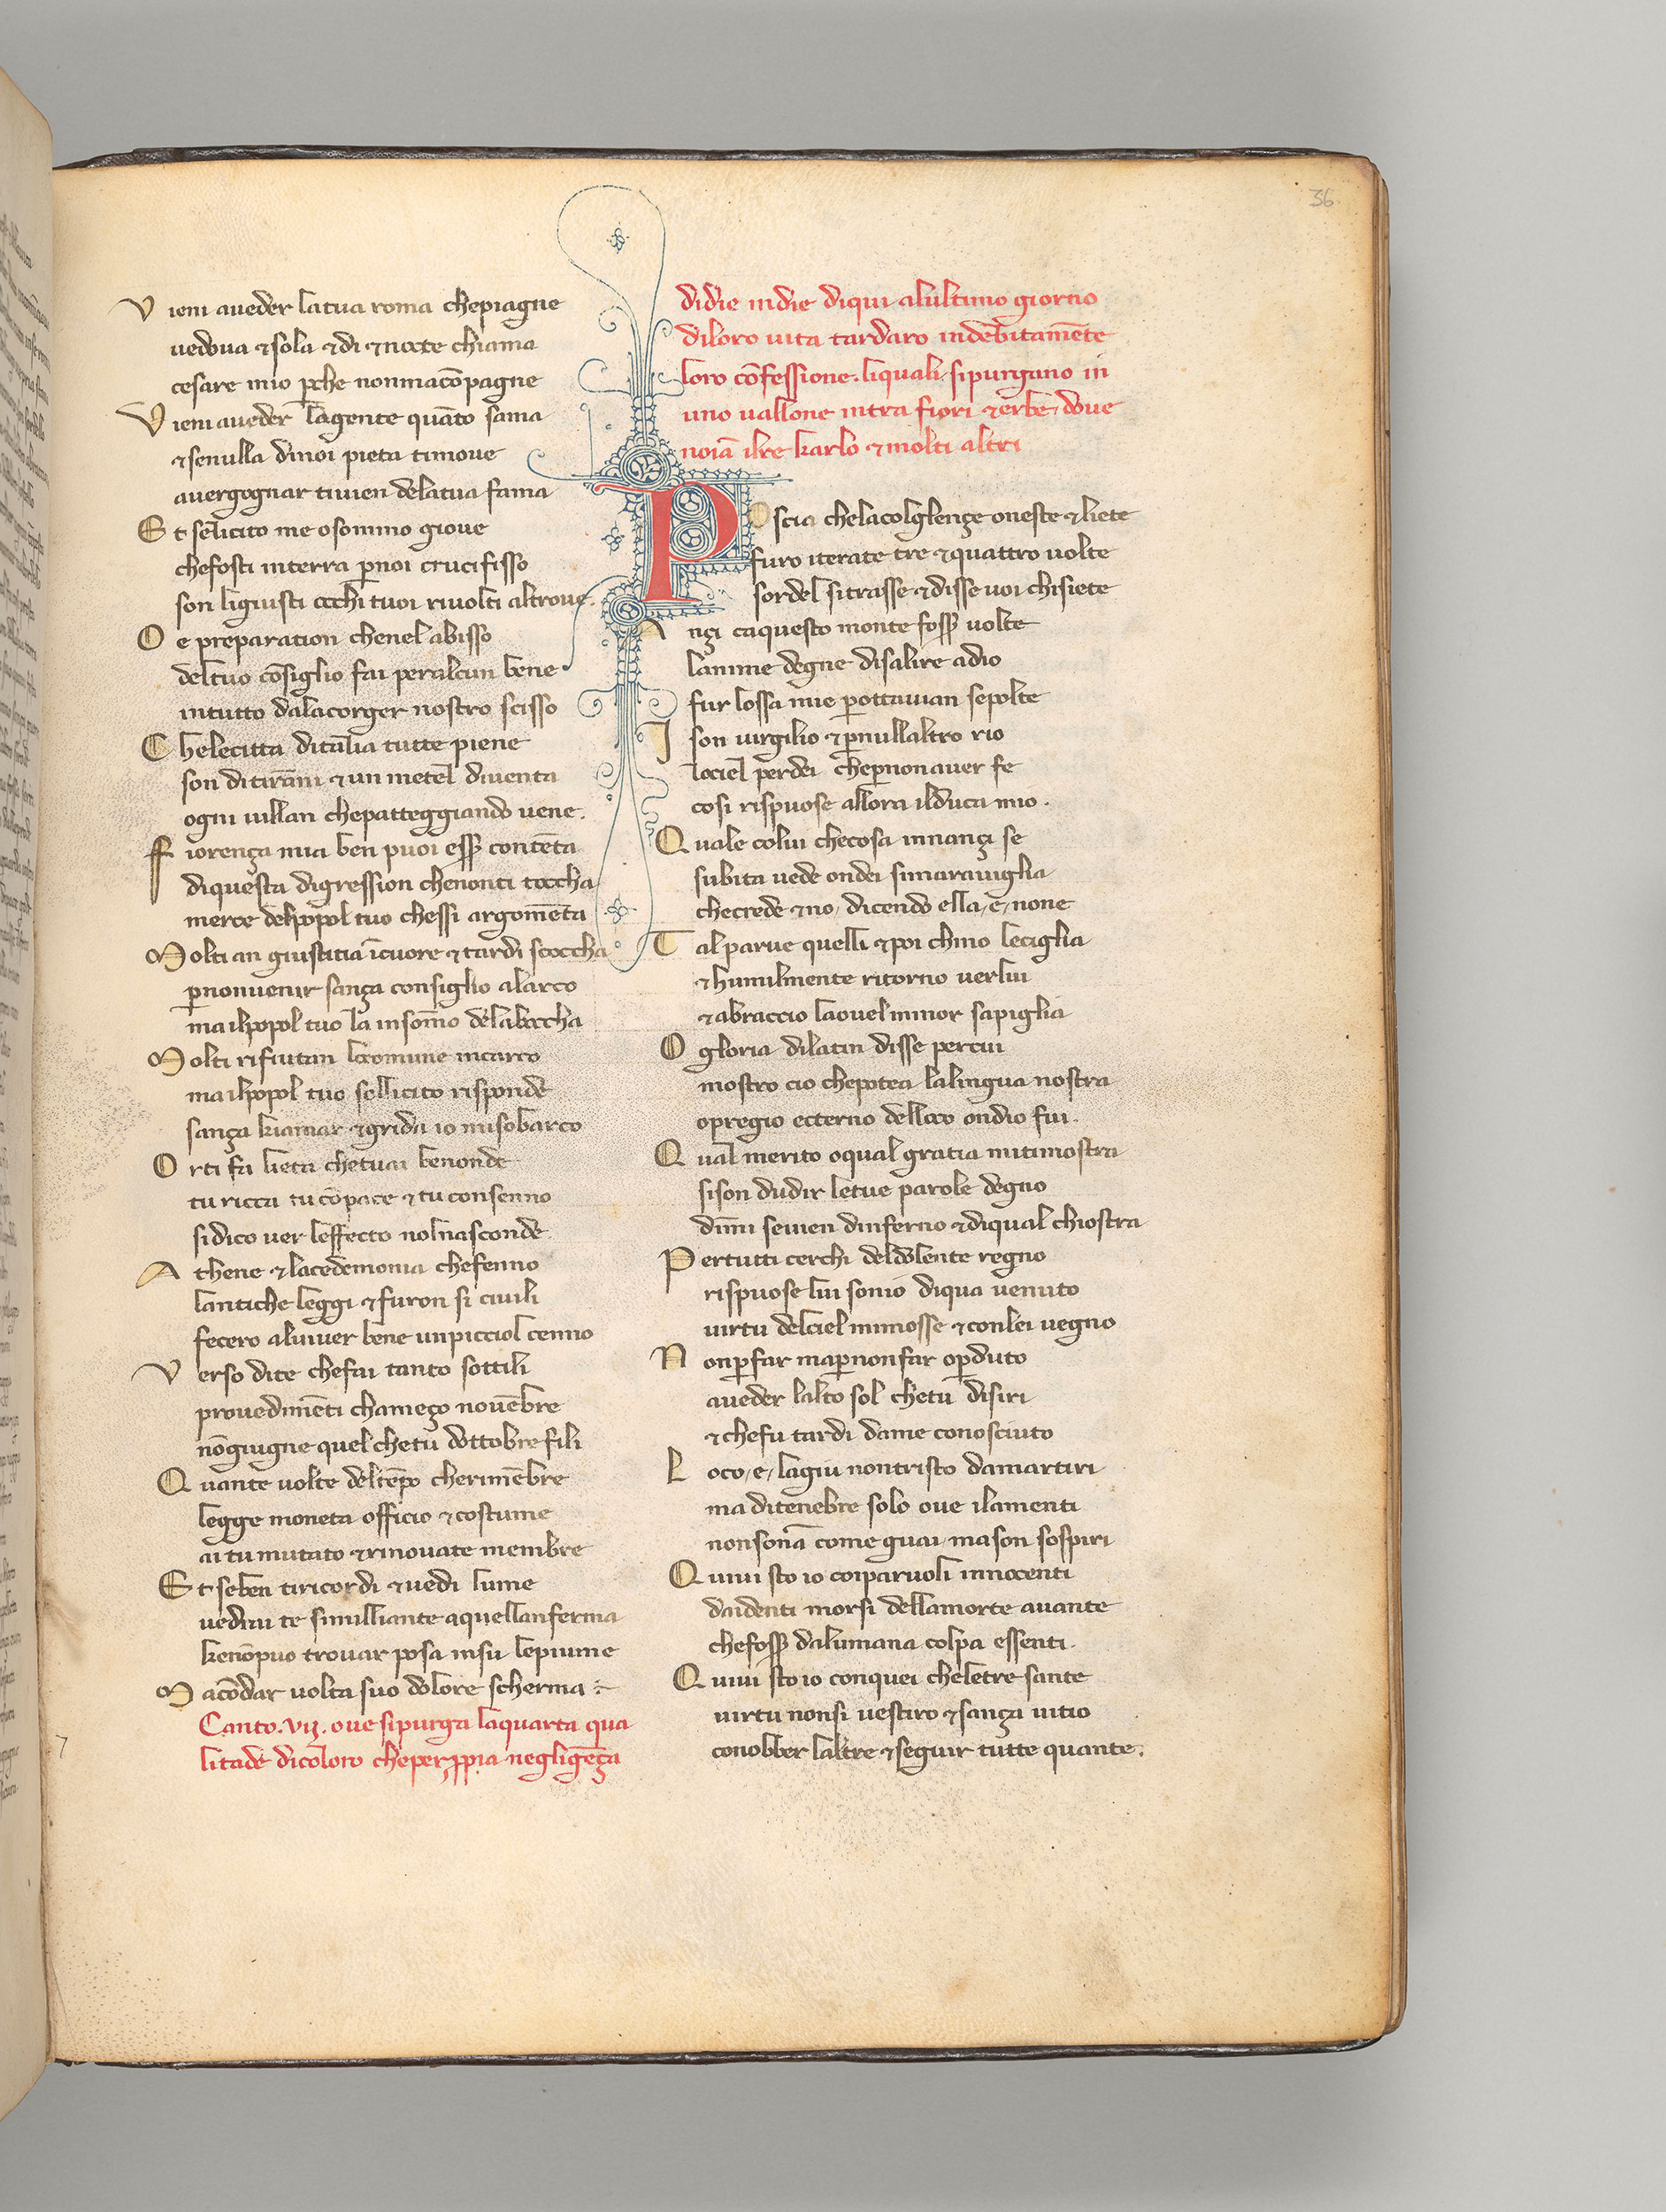 36
Vieni aveder latua roma chepiagne
uedoua ⁊sola ⁊di ⁊nocte chiama
cesare mio ꝑche nonmacōpagne
Vieni aueder lagente quāto sama
⁊senulla dinoi pieta timoue
auergognar tiuien delatua fama
Et selicito me osommo gioue
chefosti interra ꝑnoi crucifisso
son ligiusti occhi tuoi riuolti altroue.
O e preparation chenel abisso
deltuo cōsiglio fai peralcun bene
intutto dalacorger nostro scisso
Chelecitta ditalia tutte piene
son ditirāni ⁊ un metel diuenta
ogni uillan chepatteggiando uene.
Fiorença mia ben puoi esẜ contēta
diquesta digression chenonti toccha
merce delpopol tuo chessi argomēta
Molti an giustitia ī cuore ⁊ tardi scoccha
ꝑnonuenir sança consiglio alarco
mailpopol tuo la insōmo delaboccha
Molti rifiutan locomune incarco
mailpopol tuo sollicito risponde
sança kiamar ⁊grida io misobarco
Orti fa lieta chetuai benonde
tu ricca tu cōpace ⁊ tu consenno
sidico uer leffecto nolnasconde
Athene ⁊ lacedemonia chefenno
lantiche leggi ⁊ furon si ciuili
fecero aluiuer bene unpicciol cenno
Verso dite chefai tanto sottili
prouedimēti chameço nouēbre
nōgiugne quel chetu dottobre fili
Quante uolte deltēpo cherimēbre
legge moneta officio ⁊ costume
ai tu mutato ⁊rinouate membre
Et seben tiricordi ⁊ uedi lume
uedrai te simulliante aquellanferma
kenōpuo trouar posa insu lepiume
Macōdar uolta suo dolore scherma
Canto. vij. oue sipurga laquarta qua
litade dicoloro cheper ꝓpia negligēça
didie indie diqui alultimo giorno
diloro uita tardaro indebitamēte
loro cōfessione. liquali sipurgano in
uno uallone intra fiori ⁊ erbe doue
noīa ilre karlo ⁊ molti altri
Poscia chelacolglençe oneste ⁊ liete
furo iterate tre ⁊ quattro uolte
sordel sitrasse ⁊ disse uoi chisiete
Ançi caquesto monte fosẜ uolte
lanime degne disalire adio
fur lossa mie ꝑottauian sepolte
I son uirgilio ⁊ ꝑnullaltro rio
lociel perdei cheꝑnonauer fe
cosi rispuose allora ilduca mio.
Quale colui checosa innançi se
subita uede ondei simarauiglia
checrede ⁊ no, dicendo ella, e, none
Tal parue quelli ⁊ poi chino leciglia
⁊ humilmente ritorno uerlui
⁊ abraccio laouelminor sapiglia
O gloria dilatin disse percui
mostro cio chepotea lalingua nostra
opregio ecterno delloco ondio fui.
Qual merito oqual gratia mitimostra
sison dudir letue parole degno
dimi seuien dinferno ⁊ diqual chiostra
Pertutti cerchi deldolente regno
rispuose lui sonio diqua uenuto
uirtu delciel mimosse ⁊ conlei uegno
Nonꝑfar maꝑnonfar oꝑduto
aueder lalto sol chetu disiri
⁊ chefu tardi dame conosciuto
Loco, e, lagiu nontristo damartiri
ma ditenebre solo oue ilamenti
nonsonā come guai, mason sospiri
Quiui sto io coiparuoli innocenti
daidenti morsi dellamorte auante
chefosẜ dalumana colpa essenti.
Quiui sto io conquei cheletre sante
uirtu nonsi uestiro ⁊ sança uitio
conobber laltre ⁊ seguir tutte quante.